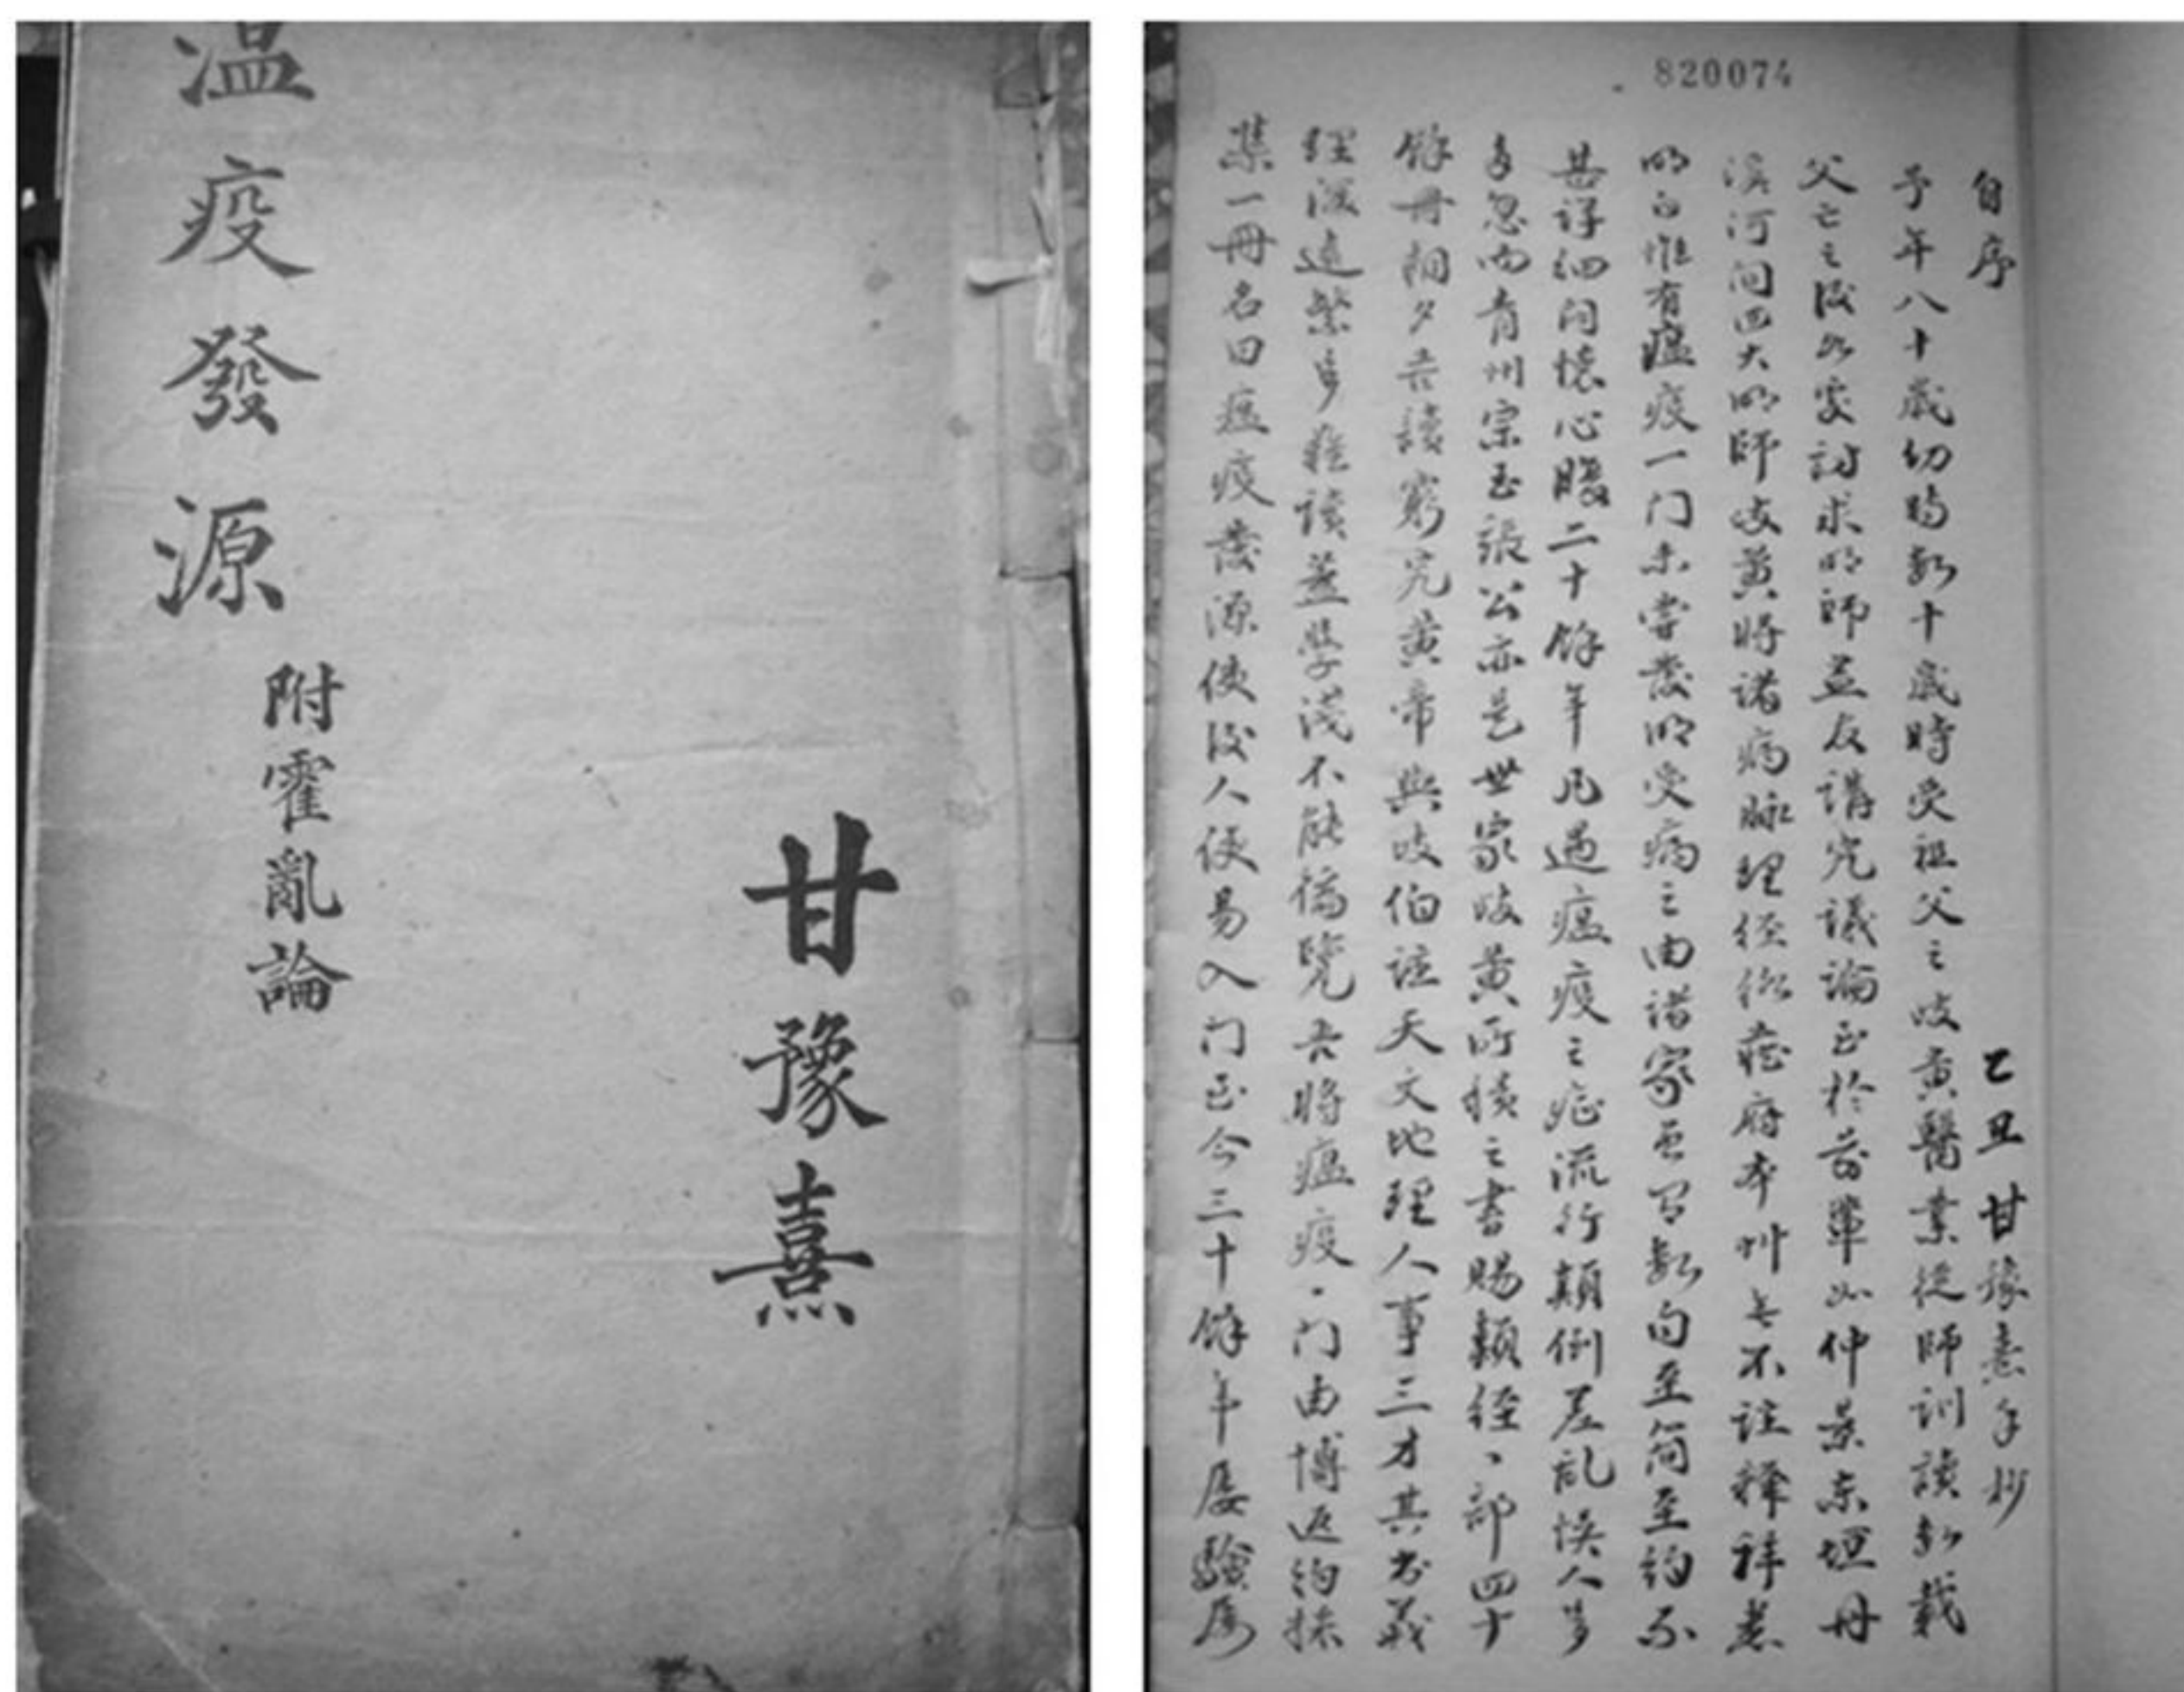 温疫發源
附霍亂論
甘豫熹
820074
自序
乙丑甘豫熹手抄
予年八十歲幼時數十歲時受祖父之岐黄醫業從師訓讀數載
父亡之後必安訪求明師益友講究議論至於前輩如仲景東垣丹
溪河间四大明師岐黄將诸病脉理经络脏府本艸無不註释祥悉
明白惟有瘟疫一门未嘗發明受病之由诸家数句至简至约不
甚详细问懷心腹二十餘年凡遇瘟疫之症流行顛倒差乱悮人多
多忽而青州宗玉張公亦是世家岐黄所積之書賜類经一部四十
餘冊朝夕苦讀窮究黄帝與岐伯註天文地理人事三才其书義
理深遠繁多難读蓋學淺不能徧覽吾將瘟疫一门由博返约採
集一冊名曰瘟疫發源使後人便易入门至今三十餘年屡驗屡